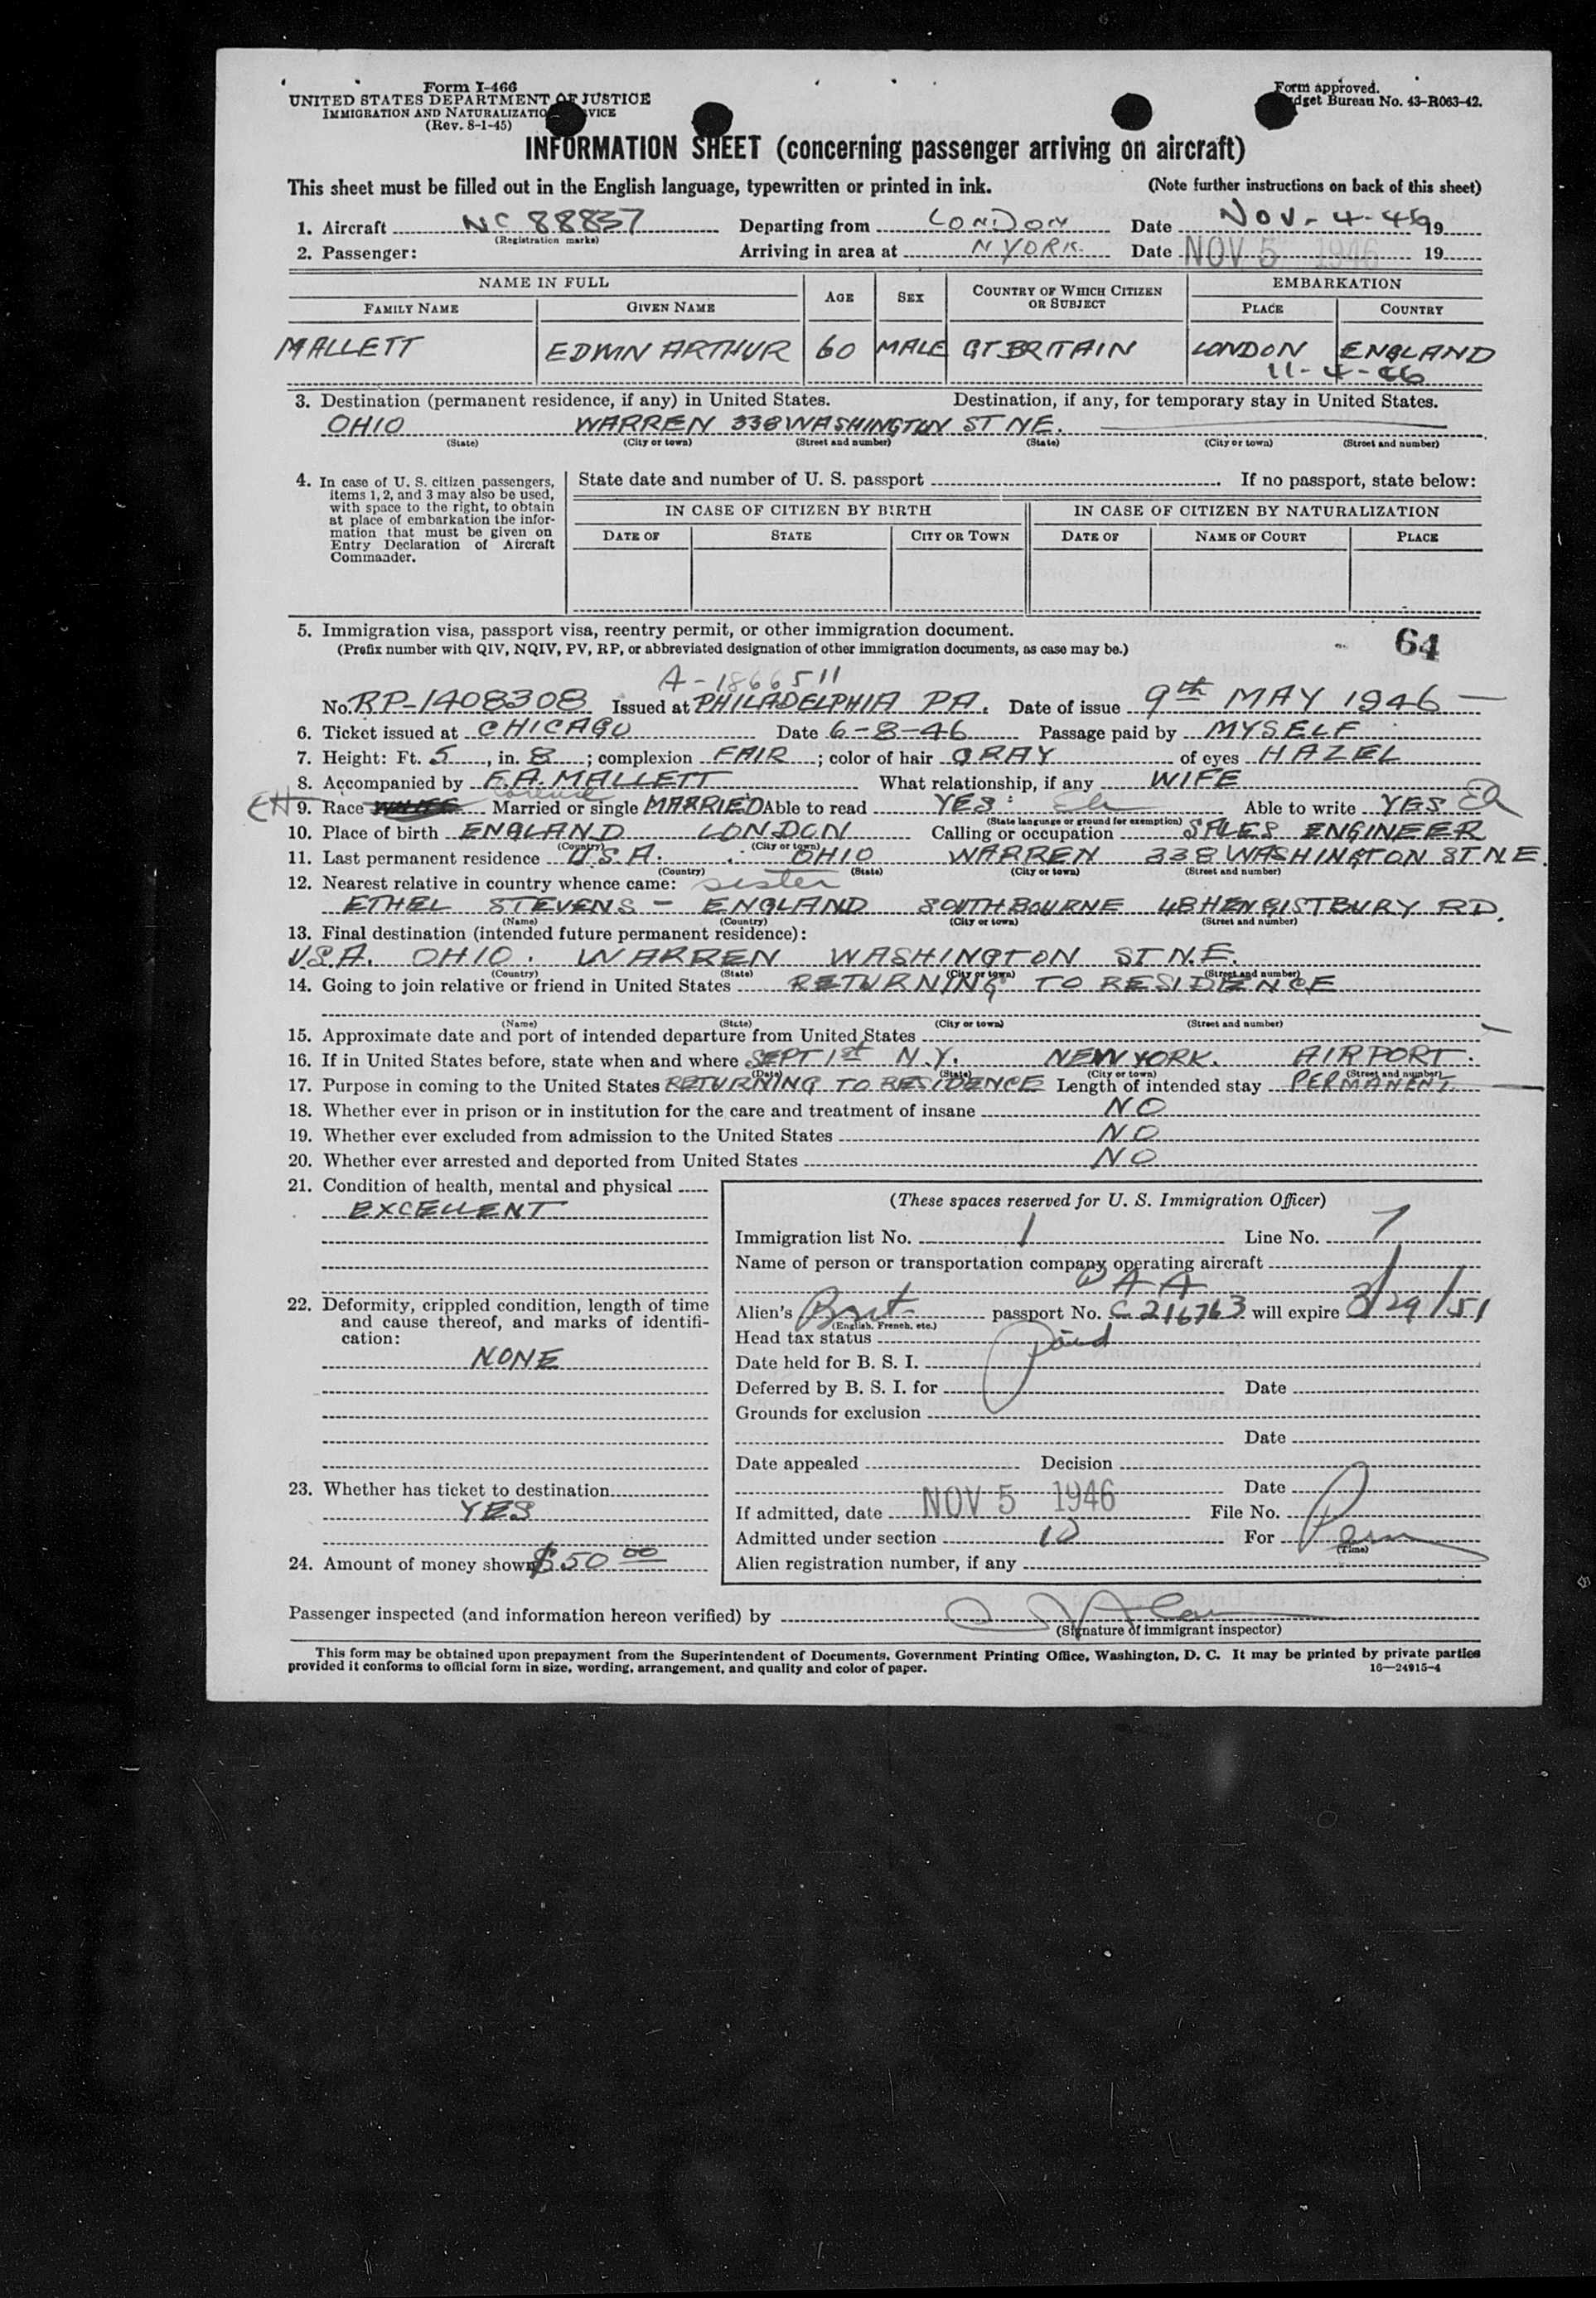 Form I-466
UNITED STATES DEPARTMENT OF JUSTICE
IMMIGRATION AND NATURALIZATION SERVICE
(Rev. 8-1-45)
Form approved.
Budget Bureau No. 43-R063-42.
INFORMATION SHEET (concerning passenger arriving on aircraft)
This sheet must be filled out in the English language, typewritten or printed in ink. (Note further instructions on back of this sheet)
1. Aircraft NC 88837 Departing from LONDON Date NOV-4-46 19
(Registration marks)
2. Passenger: Arriving in area at N YORK. Date NOV 5 1946 19
NAME IN FULL AGE SEX COUNTRY OF WHICH CITIZEN OR SUBJECT EMBARKATION
FAMILY NAME GIVEN NAME PLACE COUNTRY
MALLETT EDWIN ARTHUR 60 MALE GT BRITAIN LONDON ENGLAND
11-4-46
3. Destination (permanent residence, if any) in United States. Destination, if any, for temporary stay in United States.
OHIO WARREN 338 WASHINGTON ST NE.
(State) (City or town) (Street and number) (State) (City or town) (Street and number)
4. In case of U. S. citizen passengers, items 1, 2, and 3 may also be used, with space to the right, to obtain at place of embarkation the information that must be given on Entry Declaration of Aircraft Commander.
State date and number of U. S. passport If no passport, state below:
IN CASE OF CITIZEN BY BIRTH IN CASE OF CITIZEN BY NATURALIZATION
DATE OF STATE CITY OR TOWN DATE OF NAME OF COURT PLACE
5. Immigration visa, passport visa, reentry permit, or other immigration document.
(Prefix number with QIV, NQIV, PV, RP, or abbreviated designation of other immigration documents, as case may be.)
64
A-1866511
No. RP-1408308 Issued at PHILADELPHIA PA. Date of issue 9th MAY 1946
6. Ticket issued at CHICAGO Date 6-8-46 Passage paid by MYSELF
7. Height: Ft. 5, in. 8; complexion FAIR; color of hair GRAY of eyes HAZEL
8. Accompanied by F.A. MALLETT What relationship, if any WIFE
9. Race WHITE Married or single MARRIED Able to read YES Able to write YES
(State language or ground for exemption)
10. Place of birth ENGLAND LONDON Calling or occupation SALES ENGINEER
(Country) (City or town)
11. Last permanent residence U.S.A. OHIO WARREN 338 WASHINGTON ST N.E.
(Country) (State) (City or town) (Street and number)
12. Nearest relative in country whence came: sister
ETHEL STEVENS - ENGLAND SOUTHBOURNE 48 HENGISTBURY RD.
(Name) (Country) (City or town) (Street and number)
13. Final destination (intended future permanent residence):
U.S.A. OHIO. WARREN WASHINGTON ST N.E.
(Country) (State) (City or town) (Street and number)
14. Going to join relative or friend in United States RETURNING TO RESIDENCE
(Name) (State) (City or town) (Street and number)
15. Approximate date and port of intended departure from United States
16. If in United States before, state when and where SEPT 1st N.Y. NEW YORK. AIRPORT.
(Date) (State) (City or town) (Street and number)
17. Purpose in coming to the United States RETURNING TO RESIDENCE Length of intended stay PERMANENT
18. Whether ever in prison or in institution for the care and treatment of insane NO
19. Whether ever excluded from admission to the United States NO
20. Whether ever arrested and deported from United States NO
21. Condition of health, mental and physical
EXCELLENT
22. Deformity, crippled condition, length of time and cause thereof, and marks of identification:
NONE
23. Whether has ticket to destination
YES
24. Amount of money shown $50 00
(These spaces reserved for U. S. Immigration Officer)
Immigration list No. 1 Line No. 7
Name of person or transportation company operating aircraft
P A A
Alien's Brit passport No. C 216763 will expire 3/29/51
(English, French, etc.)
Head tax status Paid
Date held for B. S. I.
Deferred by B. S. I. for Date
Grounds for exclusion
Date
Date appealed Decision
Date
If admitted, date NOV 5 1946 File No.
Admitted under section 10 For Perm
(Time)
Alien registration number, if any
Passenger inspected (and information hereon verified) by
(Signature of immigrant inspector)
This form may be obtained upon prepayment from the Superintendent of Documents, Government Printing Office, Washington, D. C. It may be printed by private parties
provided it conforms to official form in size, wording, arrangement, and quality and color of paper. 16—24915-4